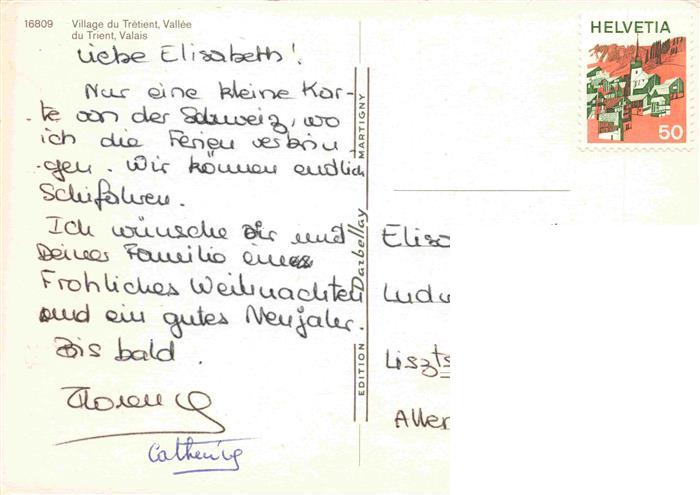 16809 Village du Trétient, Vallée
du Trient, Valais
HELVETIA
50
Liebe Elisabeth!
Nur eine kleine Kar-
te von der Schweiz, wo
ich die Ferien verbrin-
gen. Wir können endlich
Schifahren.
Ich wünsche Dir und
Deiner Familie eines
Fröhliches Weihnachten
und ein gutes Neujahr.
Bis bald.
Florence
Catherine
EDITION Darbellay MARTIGNY
Elisa
Ludw
Liszts
Aller